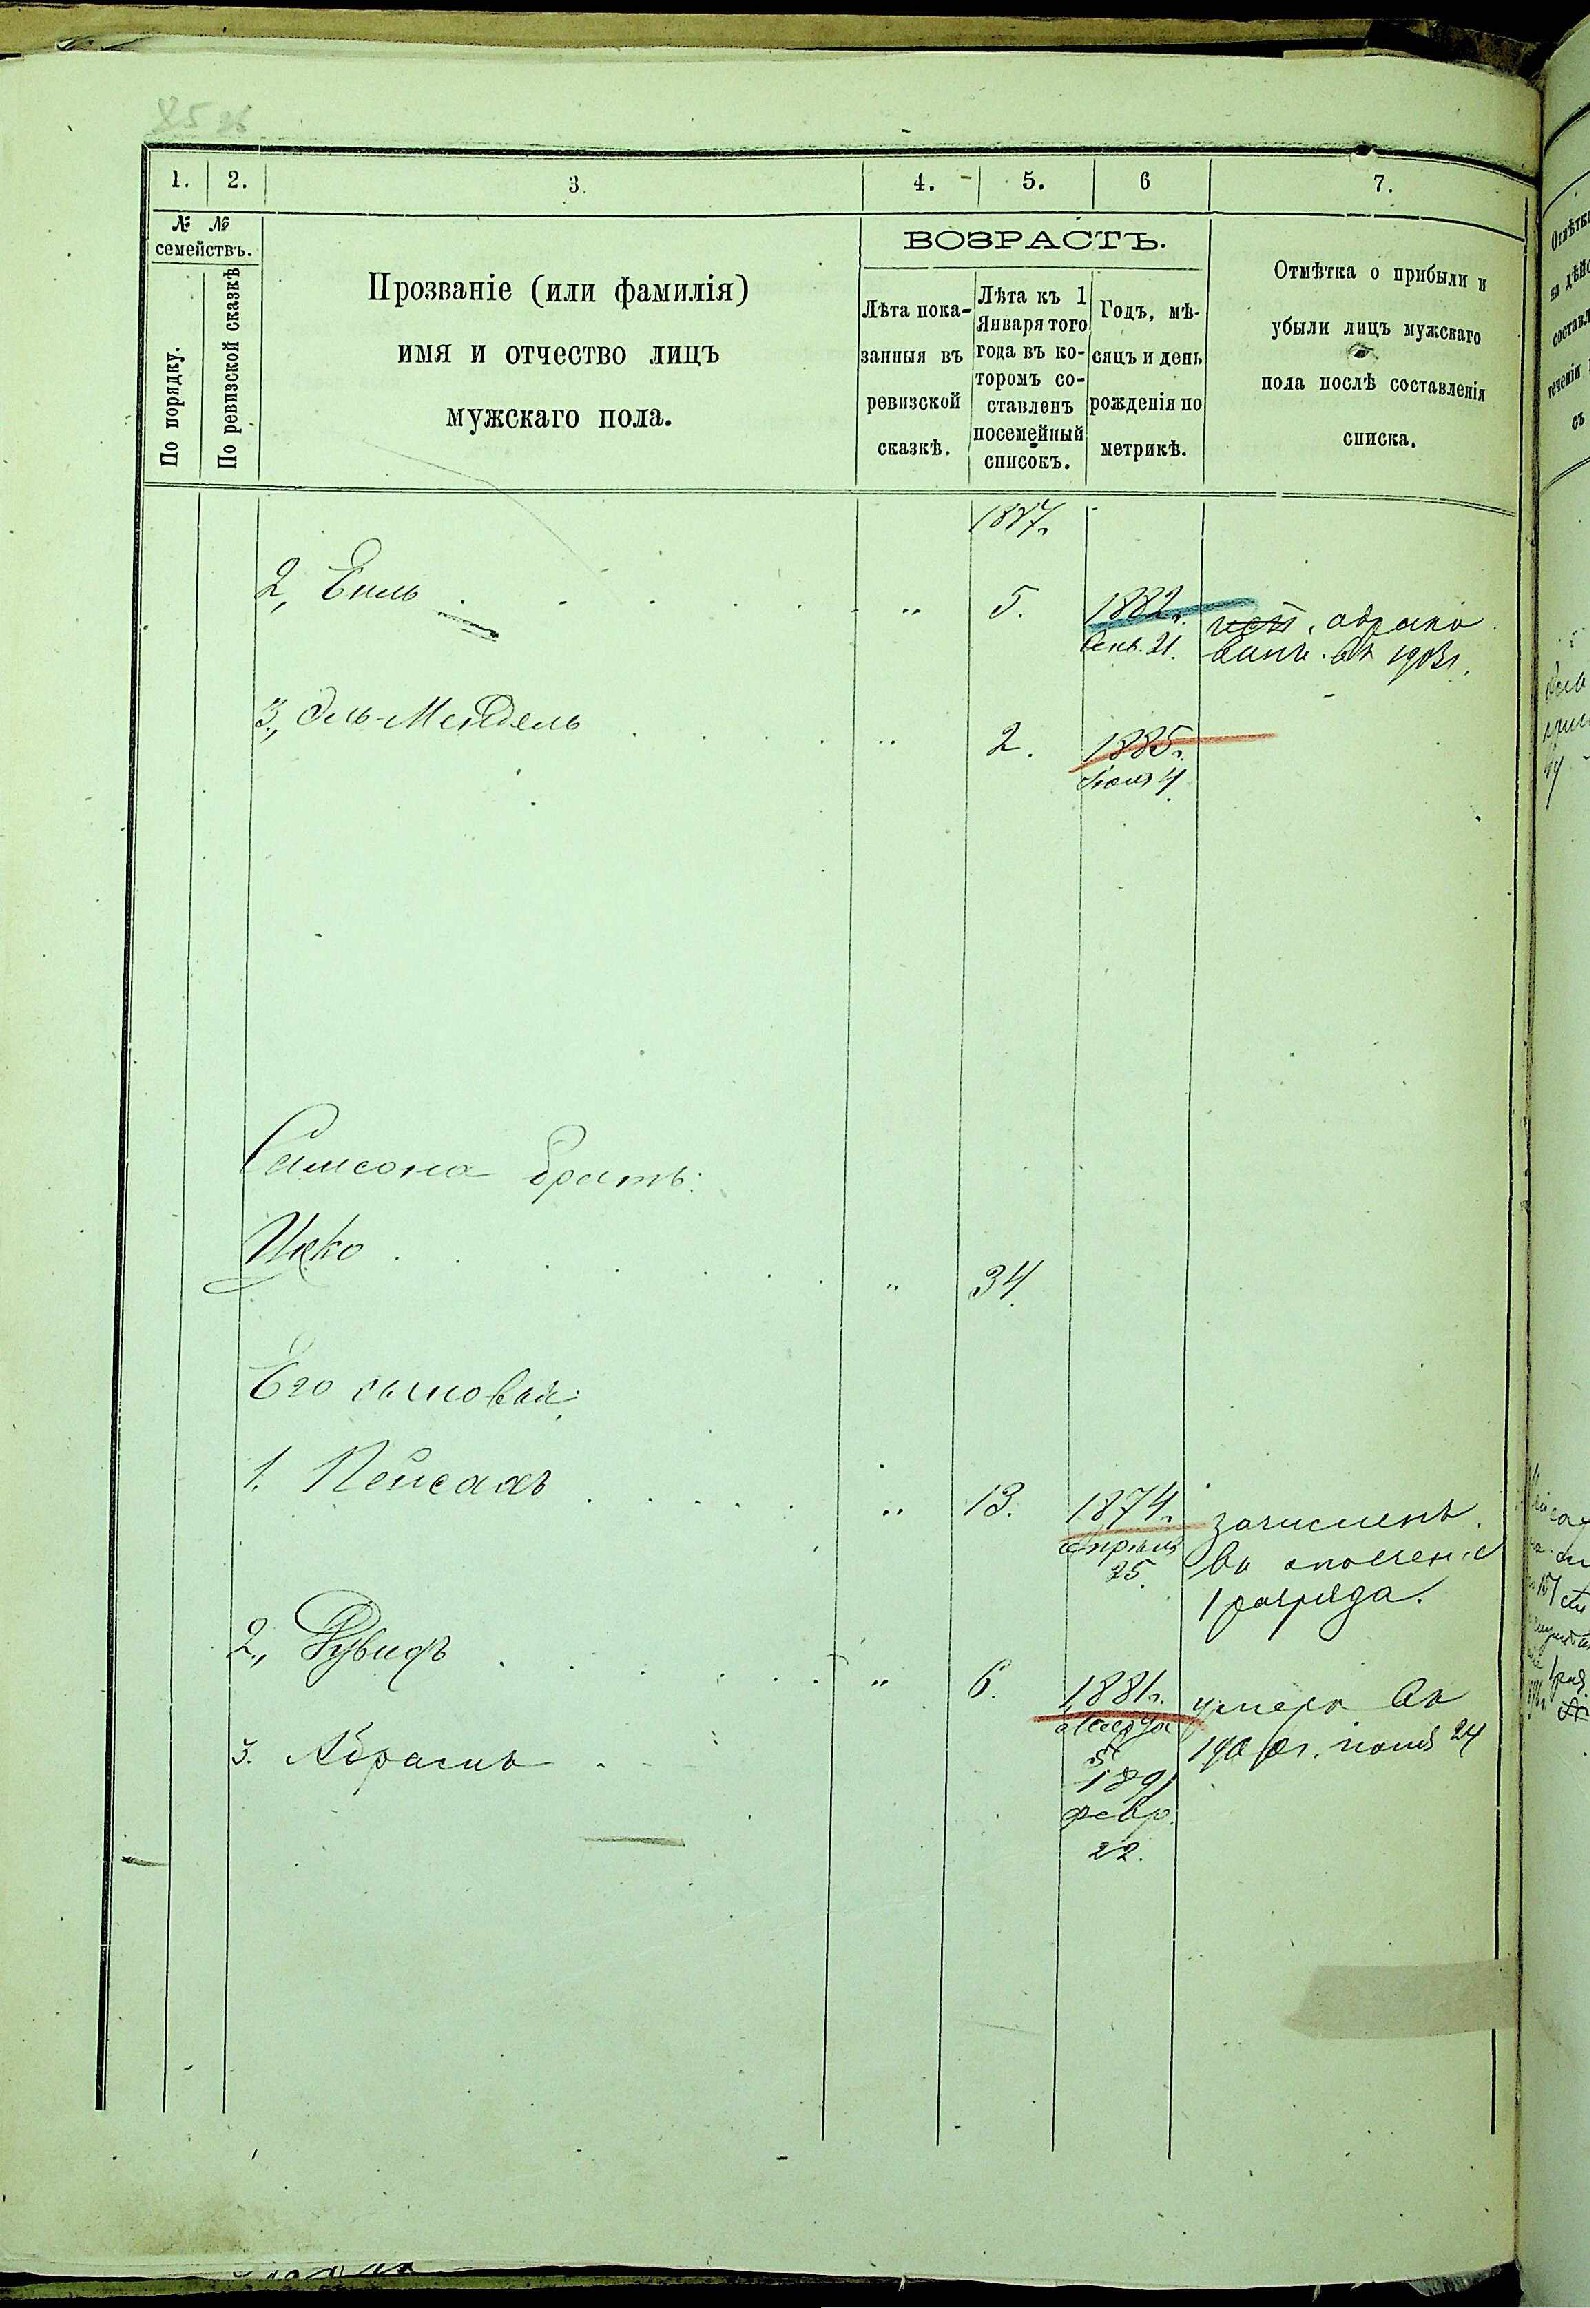 85
1. 2. 3. 4. 5. 6 7.
№ № семействъ.
По порядку.
По ревизской сказкѣ
Прозваніе (или фамилія)
имя и отчество лицъ
мужскаго пола.
ВОЗРАСТЪ.
Лѣта пока-
занныя въ
ревизской
сказкѣ.
Лѣта къ 1
Января того
года въ ко-
торомъ со-
ставленъ
посемейный
списокъ.
Годъ, мѣ-
сяцъ и день
рожденія по
метрикѣ.
Отмѣтка о прибыли и
убыли лицъ мужскаго
пола послѣ составленія
списка.
1887г.
2, Ель . . . . . . „ 5. 1882г.
Сент. 21.
въ 1903г.
3, Эль-Мендель . . . . „ 2. 1885г.
Іюля 4
Самсона братъ:
Ицко . . . . . . „ 34.
Его сыновья:
1. Пейсахъ . . . . . „ 13. 1874г.
Апрѣля
25.
зачисленъ
въ ополченіе
1 разряда.
2, Рувинъ . . . . . . „ 6. 1881г.
5
умеръ въ
іюня 24
3. Абрамъ . .
1891
февр.
22.